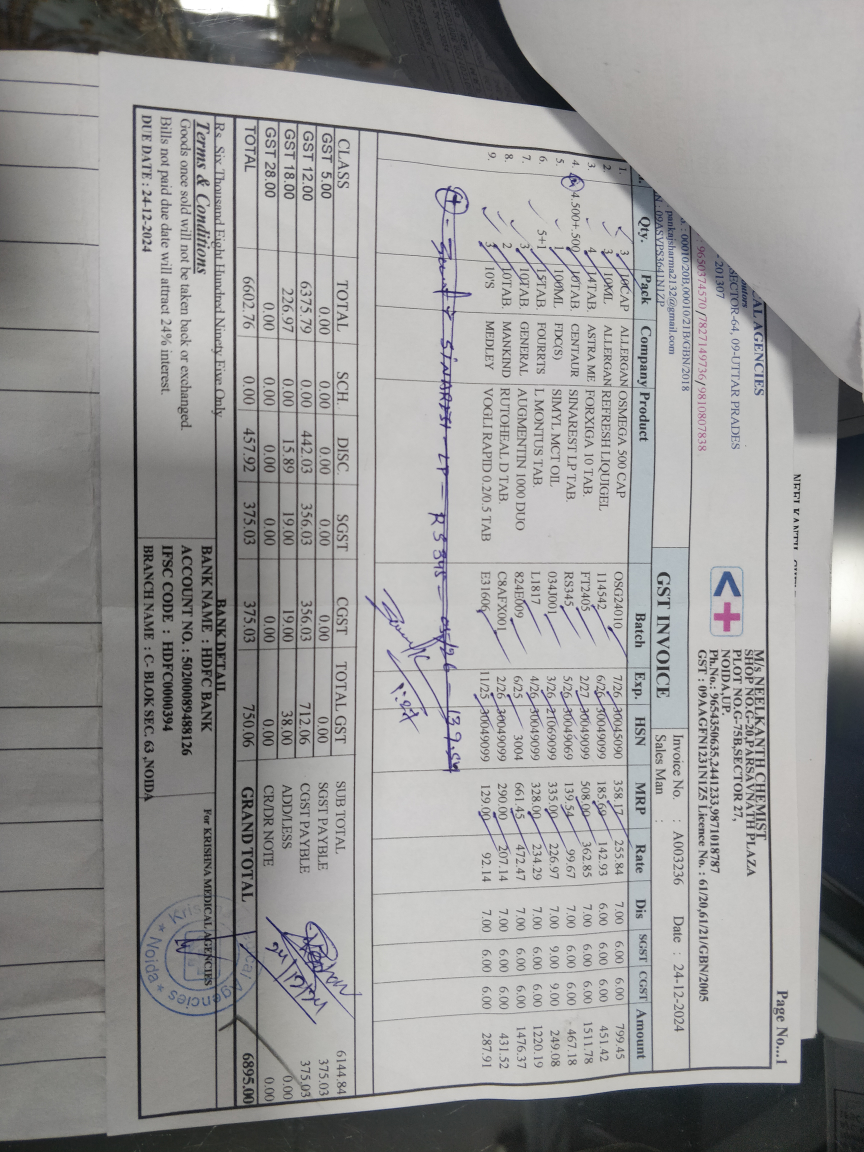 Page No...1
CAL AGENCIES
SECTOR-64, 09-UTTAR PRADES
-201307
9650374570/7827149736/9810807838
: 00010/20B,00010/21B/GBN/2018
pankajsharma2132@gmail.com
09ASVPS3641N1ZP
M/s NEELKANTH CHEMIST
SHOP NO.G-20,PARSAVNATH PLAZA
PLOT NO.G-75B,SECTOR 27,
NOIDA,UP.
Ph.No.: 9654350635,2441233,9871018787
GST : 09AAGFN1231N1Z5 Licence No. : 61/20,61/21/GBN/2005
GST INVOICE
Invoice No. : A003236 Date : 24-12-2024
Sales Man :
Qty. Pack Company Product Batch Exp. HSN MRP Rate Dis SGST CGST Amount
1. 3 10CAP ALLERGAN OSMEGA 500 CAP OSG24010 7/26 30045090 358.17 255.84 7.00 6.00 6.00 799.45
2. 3 10ML ALLERGAN REFRESH LIQUIGEL 114542 6/26 30049099 185.69 142.93 6.00 6.00 6.00 451.42
3. 4 14TAB ASTRA ME FORXIGA 10 TAB. FT2405 2/27 30049099 508.00 362.85 7.00 6.00 6.00 1511.78
4. 4.500+.500 10TAB. CENTAUR SINAREST LP TAB. RS345 5/26 30049069 139.54 99.67 7.00 6.00 6.00 467.18
5. 1 100ML FDC(S) SIMYL MCT OIL 034J001 3/26 21069099 335.00 226.97 7.00 9.00 9.00 249.08
6. 5+1 15TAB. FOURRTS L MONTUS TAB. L1817 4/26 30049099 328.00 234.29 7.00 6.00 6.00 1220.19
7. 3 10TAB. GENERAL AUGMENTIN 1000 DUO 824E009 6/25 3004 661.45 472.47 7.00 6.00 6.00 1476.37
8. 2 10TAB. MANKIND RUTOHEAL D TAB. C8AFX001 2/26 30049099 290.00 207.14 7.00 6.00 6.00 431.52
9. 3 10'S MEDLEY VOGLI RAPID 0.2/0.5 TAB E31606 11/25 30049099 129.00 92.14 7.00 6.00 6.00 287.91
SINAREST-LP - RS345 - 05/26 - 139.54
CLASS TOTAL SCH. DISC. SGST CGST TOTAL GST
GST 5.00 0.00 0.00 0.00 0.00 0.00 0.00
GST 12.00 6375.79 0.00 442.03 356.03 356.03 712.06
GST 18.00 226.97 0.00 15.89 19.00 19.00 38.00
GST 28.00 0.00 0.00 0.00 0.00 0.00 0.00
TOTAL 6602.76 0.00 457.92 375.03 375.03 750.06
SUB TOTAL 6144.84
SGST PAYBLE 375.03
CGST PAYBLE 375.03
ADD/LESS 0.00
CR/DR NOTE 0.00
GRAND TOTAL 6895.00
24/12/24
Rs. Six Thousand Eight Hundred Ninety Five Only
Terms & Conditions
Goods once sold will not be taken back or exchanged.
Bills not paid due date will attract 24% interest.
DUE DATE : 24-12-2024
BANK DETAIL
BANK NAME : HDFC BANK
ACCOUNT NO. : 50200089488126
IFSC CODE : HDFC0000394
BRANCH NAME : C- BLOK SEC. 63 ,NOIDA
For KRISHNA MEDICAL AGENCIES
Noida